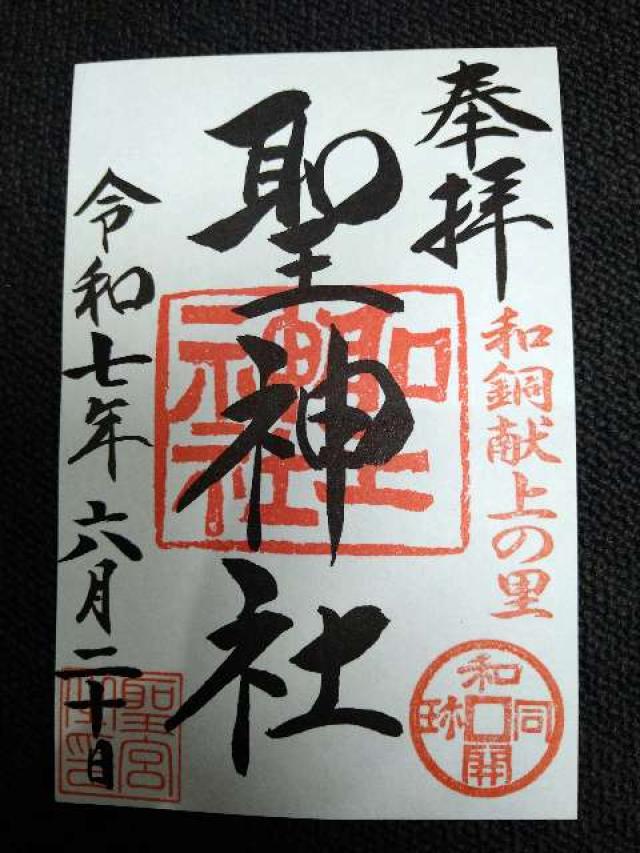 奉拝
和銅献上の里
和同開珎
聖神社
聖神社
令和七年六月二十日
聖宮